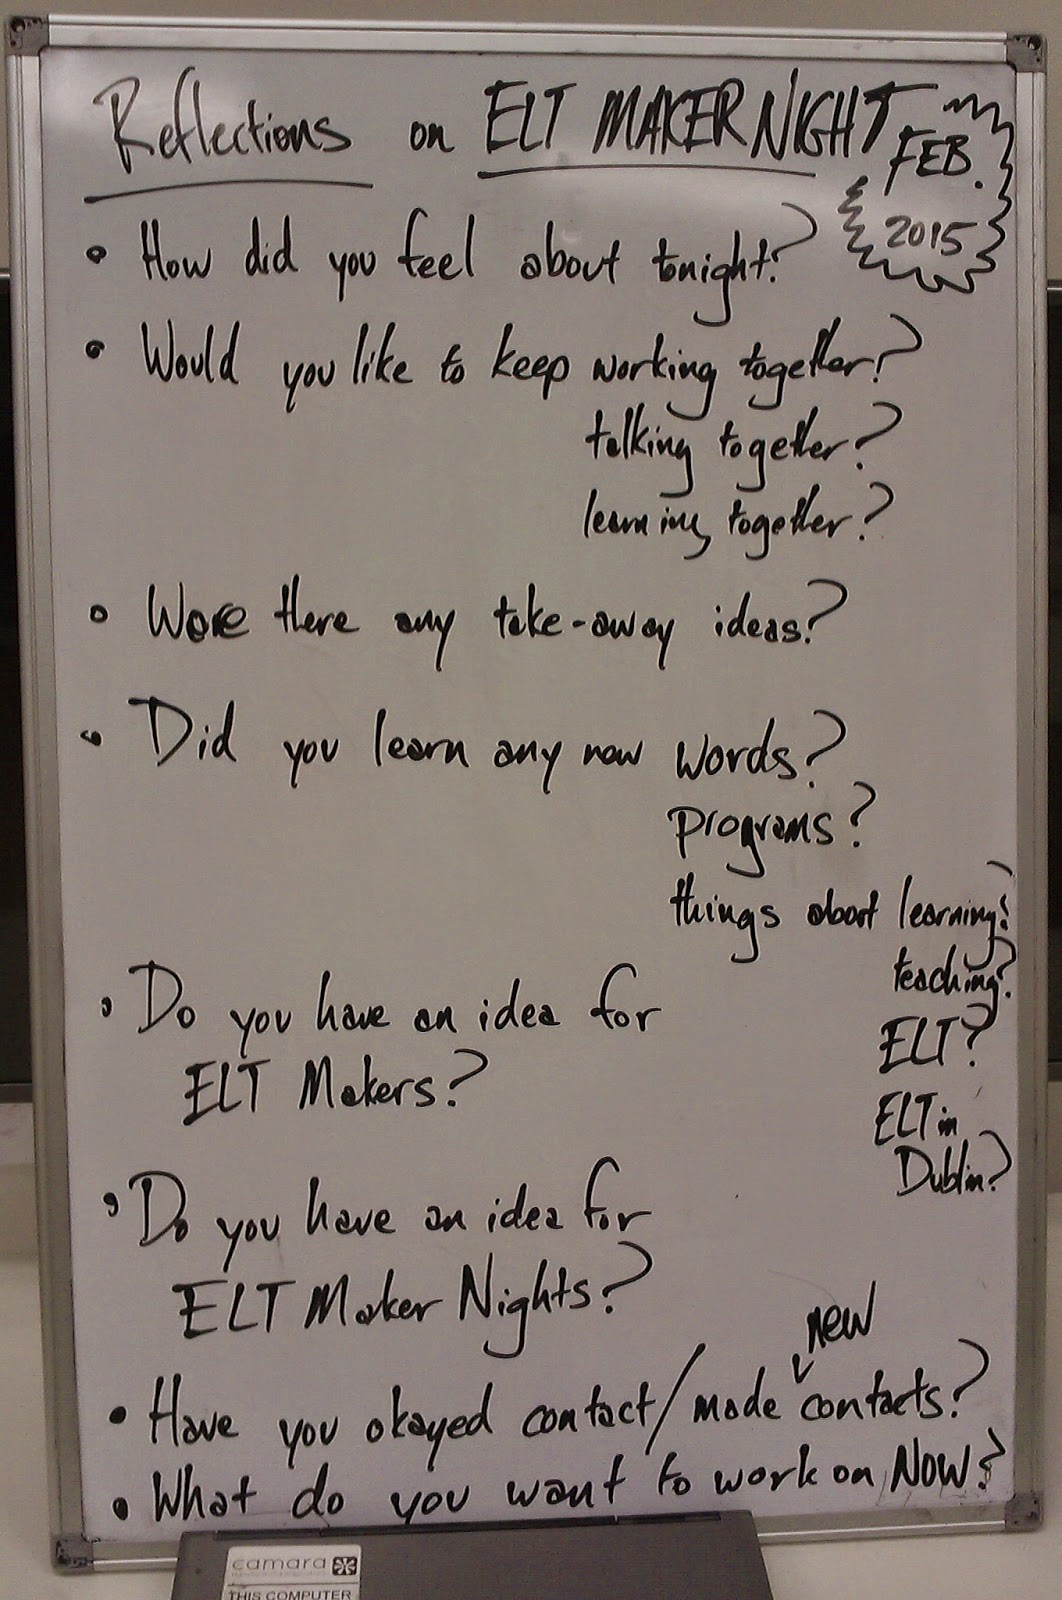 Reflections on ELT MAKER NIGHT
FEB.
2015
• How did you feel about tonight?
• Would you like to keep working together?
talking together?
learning together?
• Were there any take-away ideas?
• Did you learn any new words?
programs?
things about learning?
teaching?
ELT?
ELT in
Dublin?
• Do you have an idea for
ELT Makers?
• Do you have an idea for
ELT Maker Nights?
new
• Have you okayed contact/made contacts?
• What do you want to work on NOW?
camara
THIS COMPUTER